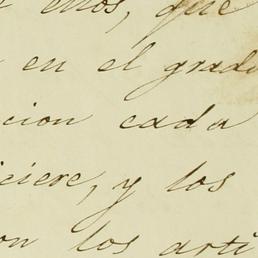 ellos, que
en el grado
cion cada
iciere, y los
on los arti